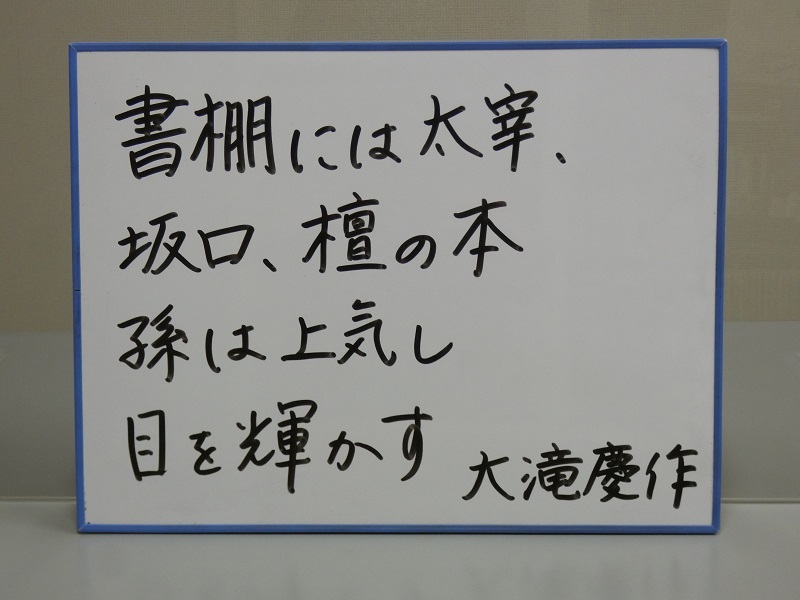 書棚には太宰、
坂口、檀の本
孫は上気し
目を輝かす
大滝慶作